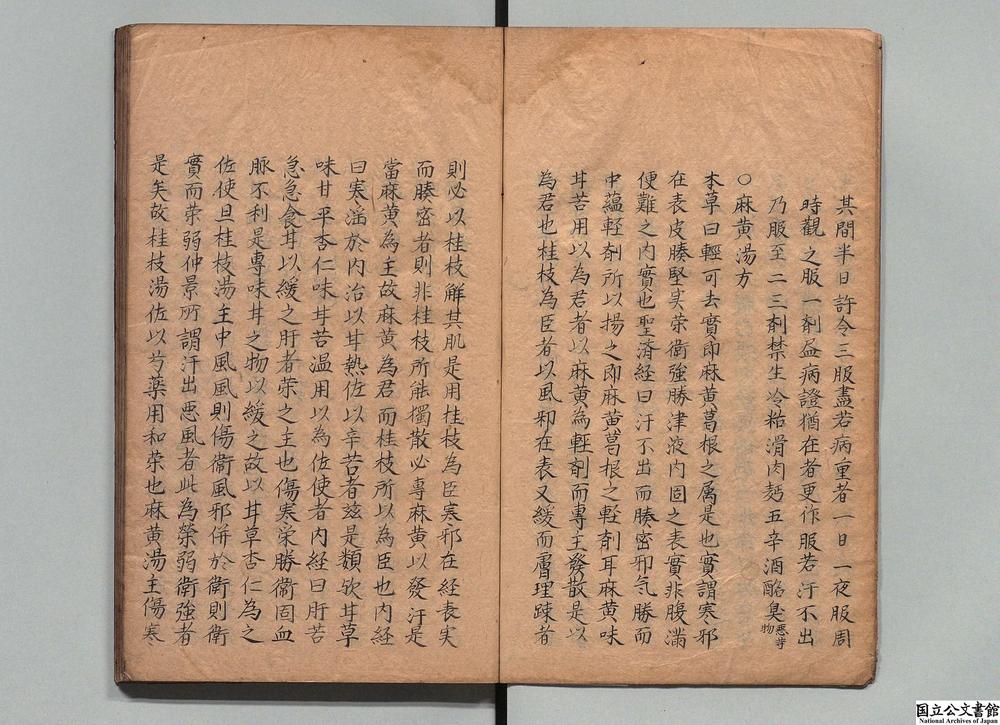 其間半日許令三服盡若病重者一日一夜服周
時觀之服一剤盡病證猶在者更作服若汗不出
乃服至二三剤禁生冷粘滑肉麪五辛酒酪臭惡等物
○麻黄湯方
本草曰輕可去實即麻黄葛根之属是也實謂寒邪
在表皮腠堅実荣衛強勝津液内固之表實非腹満
便難之内實也聖済経曰汗不出而腠密邪気勝而
中蘊軽剤所以揚之即麻黄葛根之軽剤耳麻黄味
甘苦用以為君者以麻黄為軽剤而専主發散是以
為君也桂枝為臣者以風邪在表又緩而膚理疎者
則必以桂枝解其肌是用桂枝為臣寒邪在経表実
而腠密者則非桂枝所能獨散必専麻黄以發汗是
當麻黄為主故麻黄為君而桂枝所以為臣也内経
曰寒滛於内治以甘熱佐以辛苦者兹是類欤甘草
味甘平杏仁味甘苦温用以為佐使者内経曰肝苦
急急食甘以緩之肝者荣之主也傷寒栄勝衛固血
脉不利是専味甘之物以緩之故以甘草杏仁為之
佐使且桂枝湯主中風風則傷衛風邪併於衛則衛
實而荣弱仲景所謂汗出悪風者此為榮弱衛強者
是矣故桂枝湯佐以芍薬用和荣也麻黄湯主傷寒
国立公文書館
National Archives of Japan